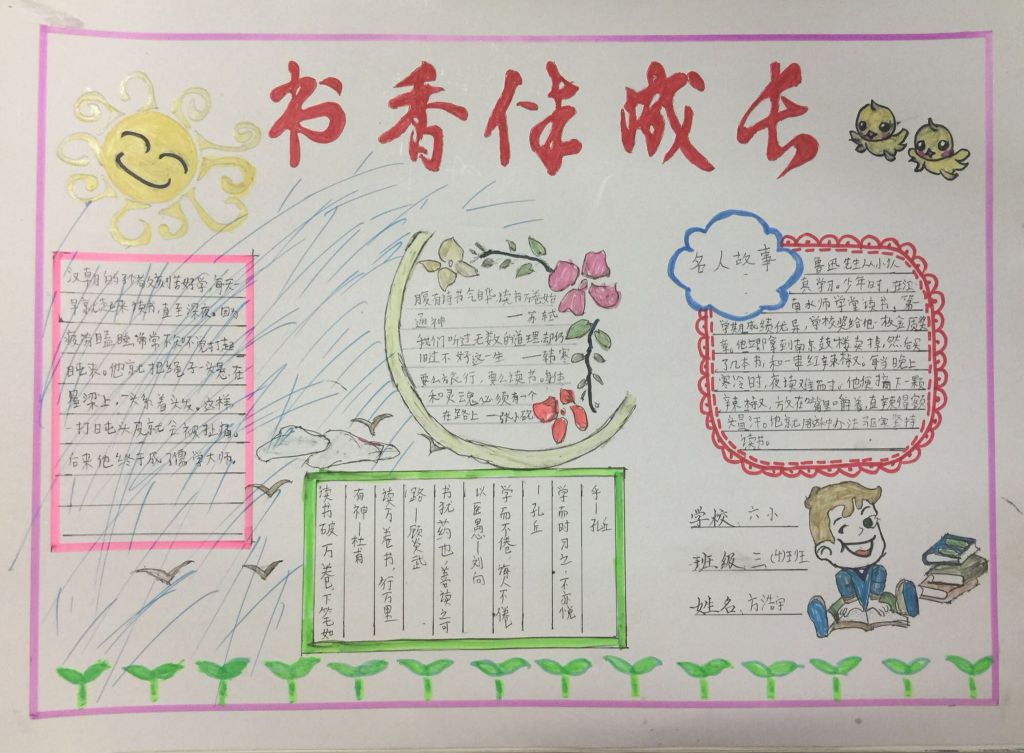 书香伴成长
汉朝的孙敬刻苦好学,每天一
早就起来读书,直至深夜。因为
疲倦瞌睡,常常不知不觉打起
来。他就把绳子一头悬在
屋梁上,一头系着头发。这样
一打瞌睡头皮就会被扯痛。
后来他终于成了儒学大师。
腹有诗书气自华,读书万卷始
通神 ——苏轼
我们听过无数的道理却仍
旧过不好这一生 ——韩寒
要么去旅行,要么读书。身体
和灵魂必须有一个
在路上——张小砚
读书破万卷,下笔如
有神—杜甫
读万卷书,行万里
路—顾炎武
书犹药也,善读之可
以医愚—刘向
学而不倦,诲人不倦
—孔丘
学而时习之,不亦悦
乎—孔丘
名人故事
鲁迅先生从小认
真学习。少年时,在江
南水师学堂读书,第一
学期成绩优异,学校奖给他一枚金质奖
章。他立即拿到南京鼓楼卖掉,然后买
了几本书,和一串红辣椒。每当晚上
寒冷时,夜读难耐时,他便摘下一颗
辣椒,放在嘴里嚼着,直辣得额
头冒汗。他就用这种办法驱寒坚持
读书。
学校:六小
班级:三(4)班
姓名:方浩宇